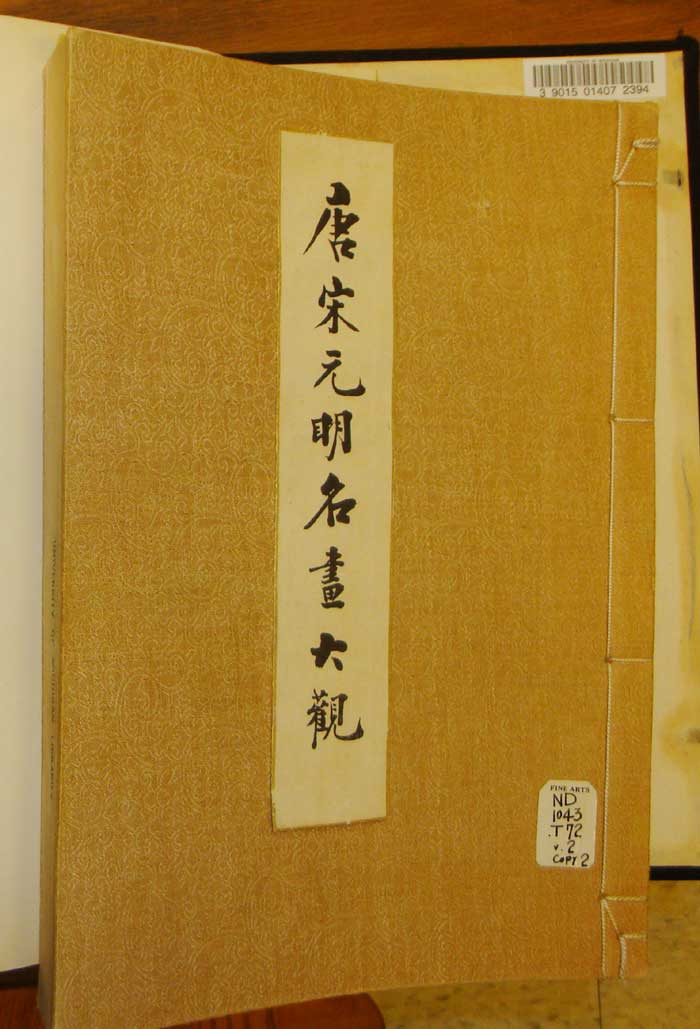 3 9015 01407 2394
唐宋元明名畫大觀
FINE ARTS
ND
1043
.T72
v.2
Copy 2